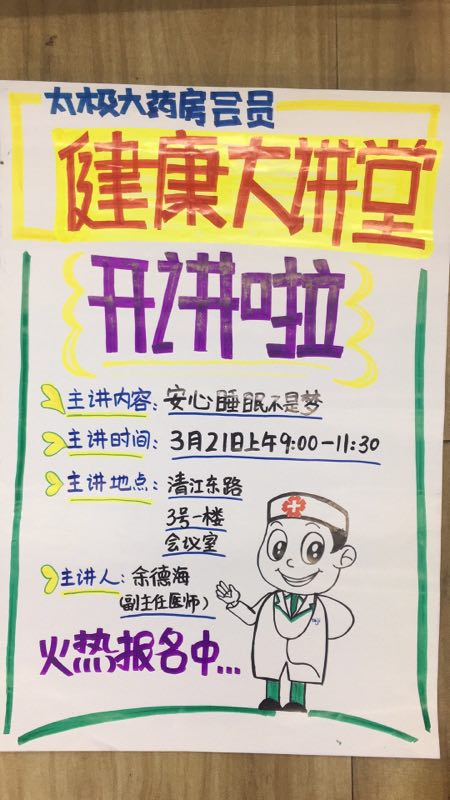 太极大药房会员
健康大讲堂
开讲啦
主讲内容:安心睡眠不是梦
主讲时间:3月21日上午9:00-11:30
主讲地点:清江东路
3号一楼
会议室
主讲人:余德海
(副主任医师)
火热报名中...